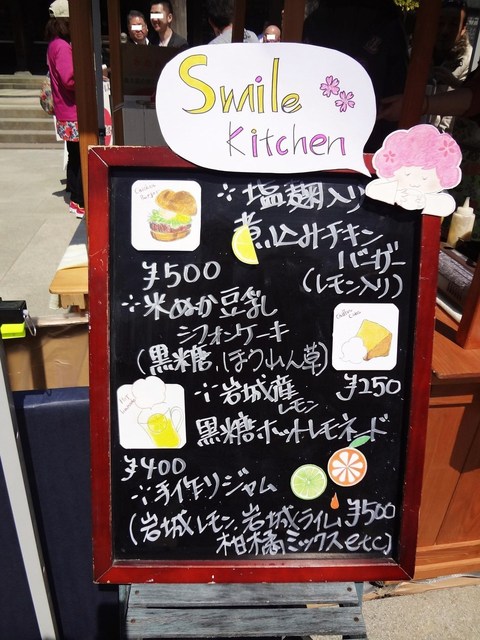 Smile
Kitchen
Chicken
Burger
※塩麹入り
煮込みチキン
バーガー
¥500
(レモン入り)
※米ぬか豆乳
シフォンケーキ
(黒糖、ほうれん草)
¥250
※岩城産
レモン
黒糖ホットレモネード
¥400
※手作りジャム
¥500
(岩城レモン、岩城ライム、
柑橘ミックスetc)